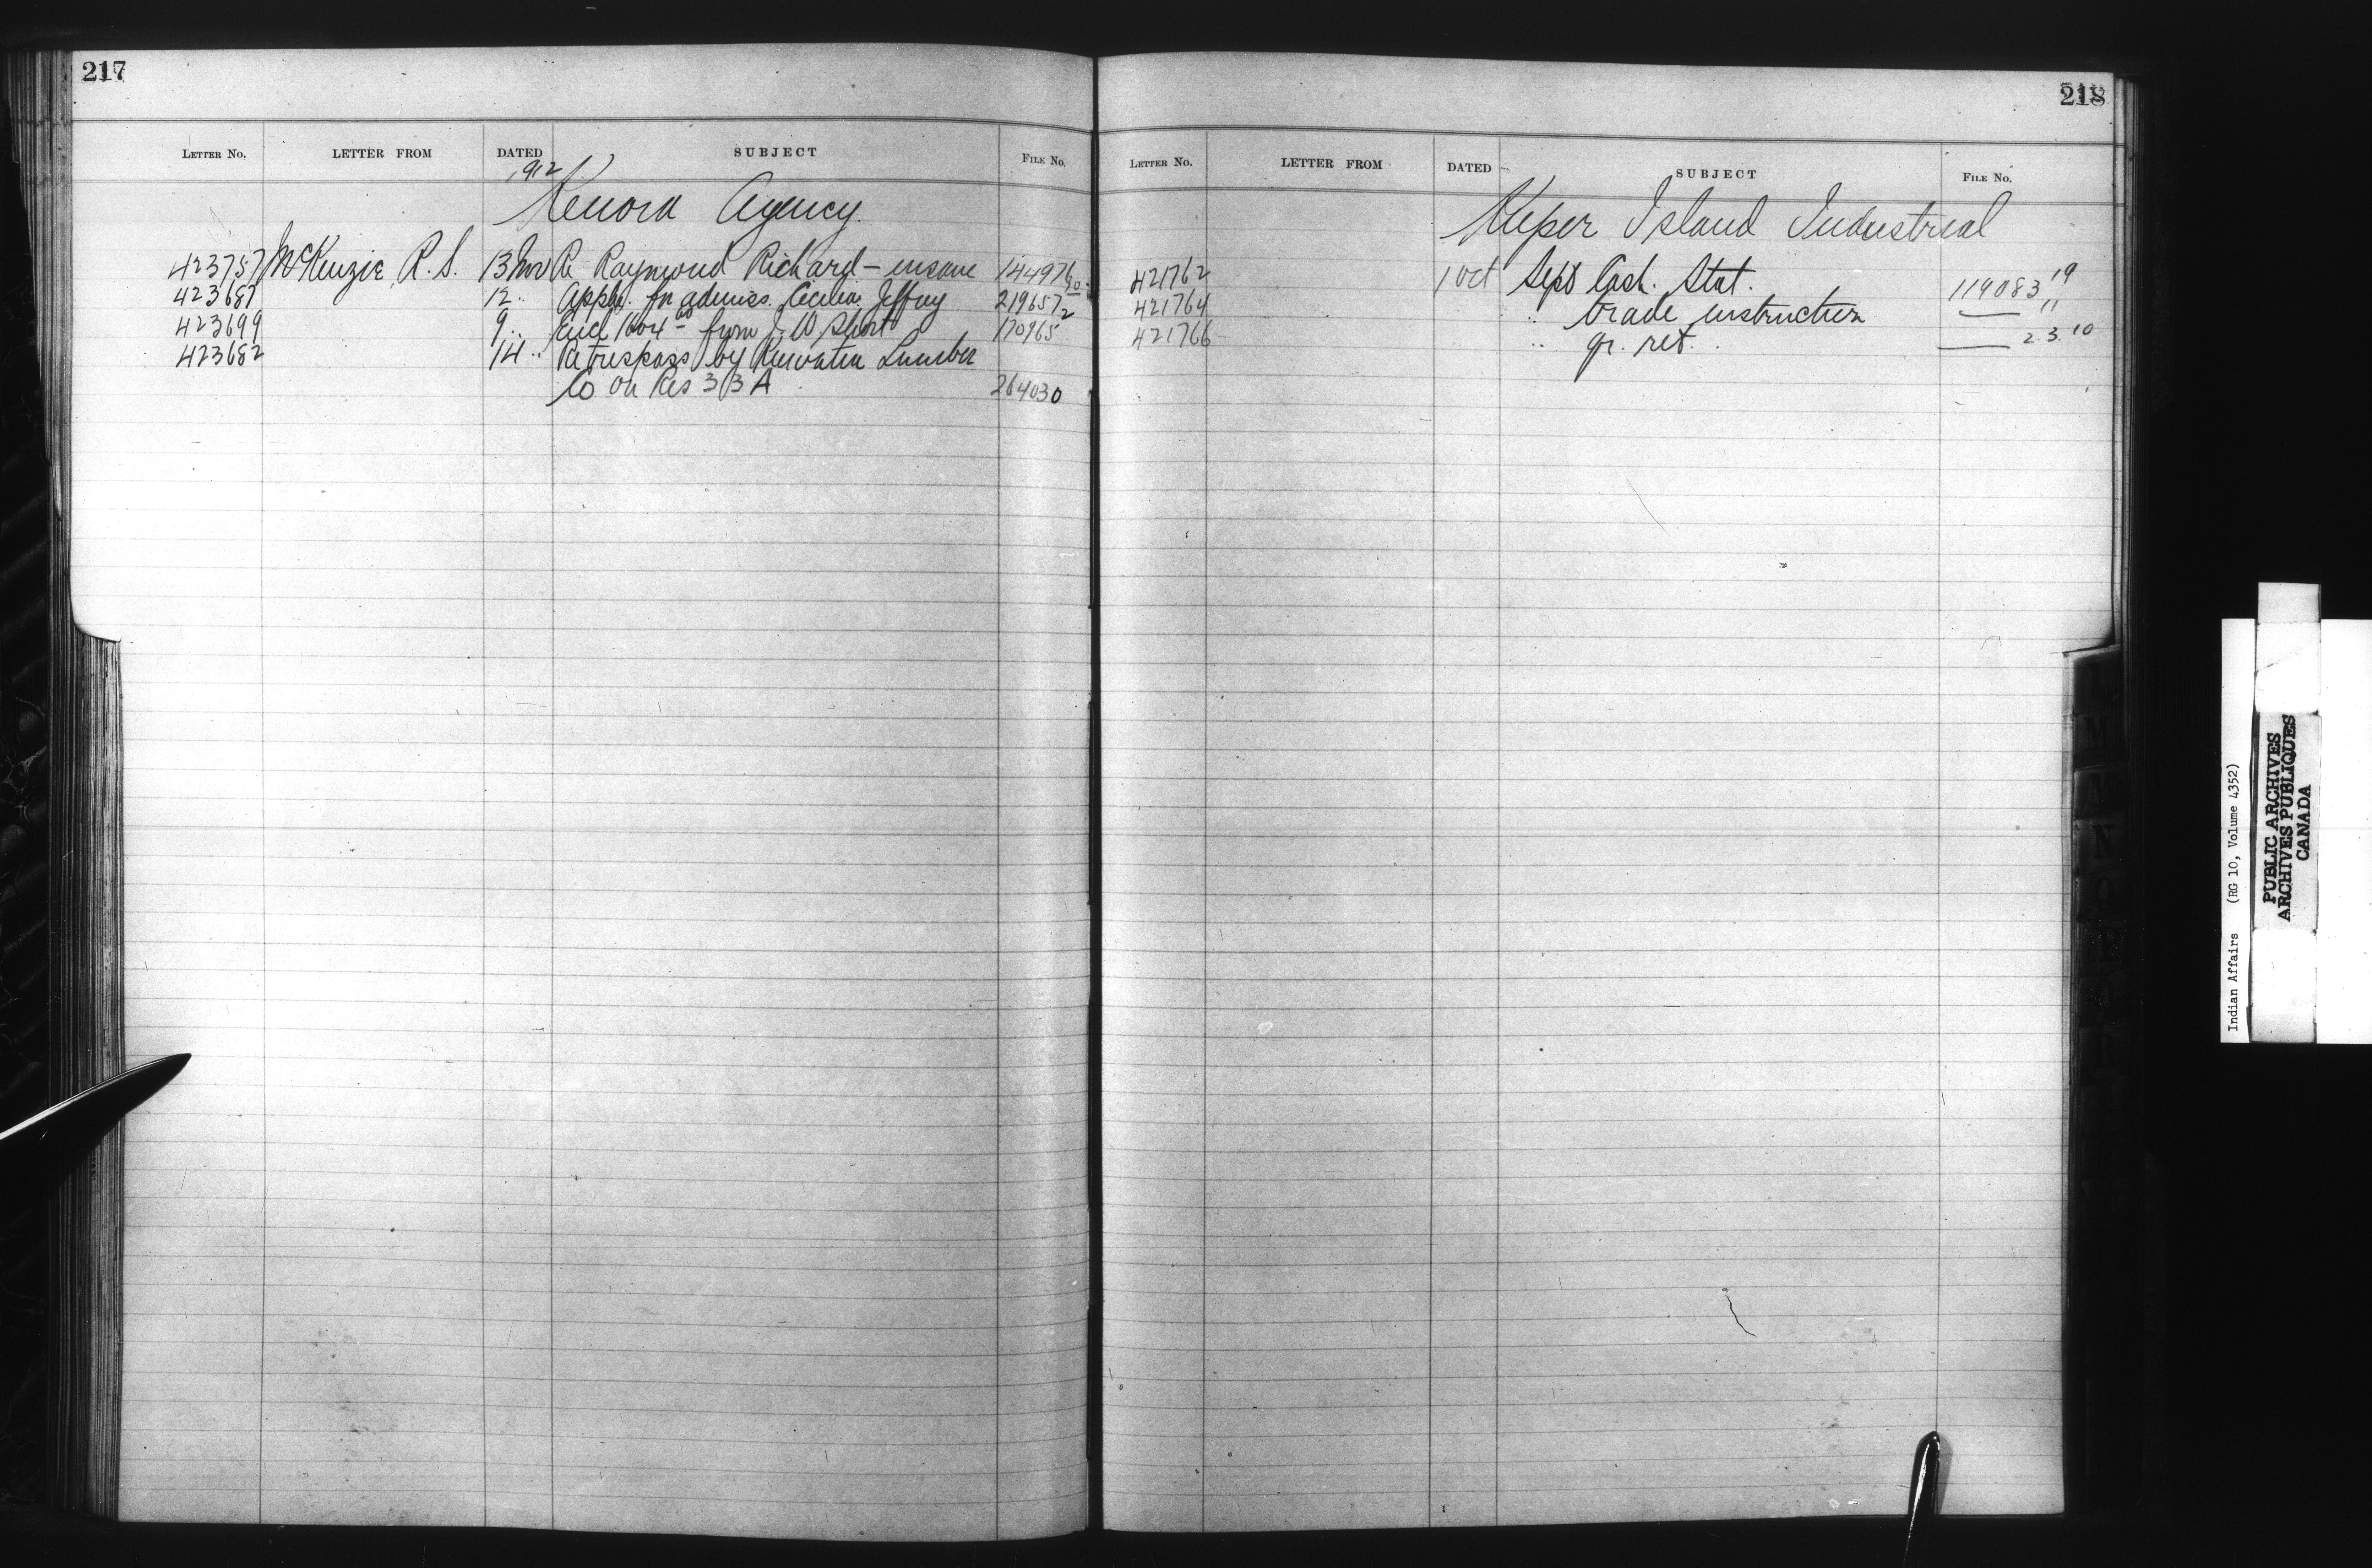 217
LETTER NO. LETTER FROM DATED SUBJECT FILE No.
1912
Kenora Agency.
423757 McKenzie, R. S. 13 Nov Re Raymond Richard - insane 144976
423687 12 .. Appln. for admiss. Cecilia Jeffrey 219657-2
423699 9 .. Encl from J. W. Short 170965
423682 14 .. Re trespass by Keewatin Lumber
Co on Res 33A 264030
218
LETTER NO. LETTER FROM DATED SUBJECT FILE No.
Kuper Island Industrial
421762 1 Oct Sept Cash. Stat. 119083 19
421764 .. trade instruction — "
421766 .. qr. ret. — 2.3.10
Indian Affairs (RG 10, Volume 4352)
PUBLIC ARCHIVES
ARCHIVES PUBLIQUES
CANADA
M
N
P